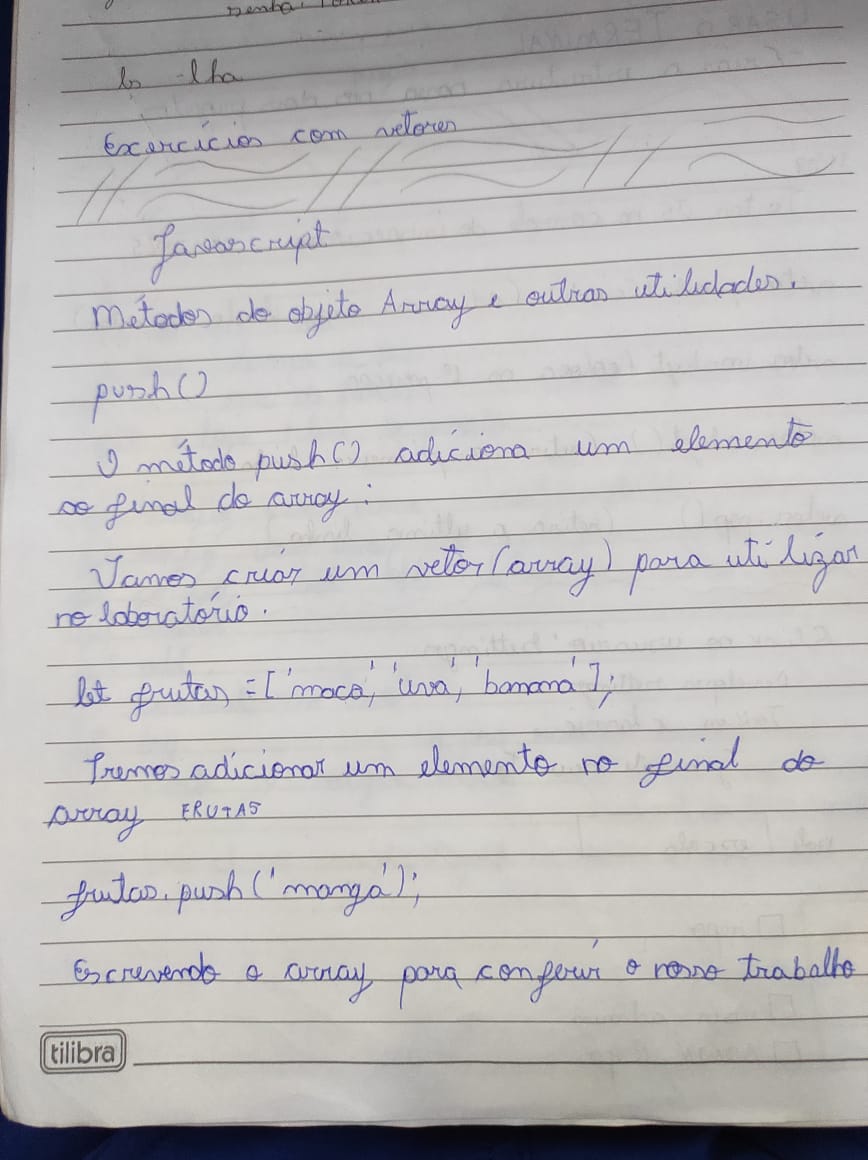 senha.
ls -lha
Exercícios com vetores
Javascript
Métodos do objeto Array e outras utilidades.
push()
O método push() adiciona um elemento
ao final do array:
Vamos criar um vetor (array) para utilizar
no laboratório.
let frutas = ['maca', 'uva', 'banana'];
Iremos adicionar um elemento no final do
array FRUTAS
frutas.push('manga');
Escrevendo o array para conferir o nosso trabalho
tilibra